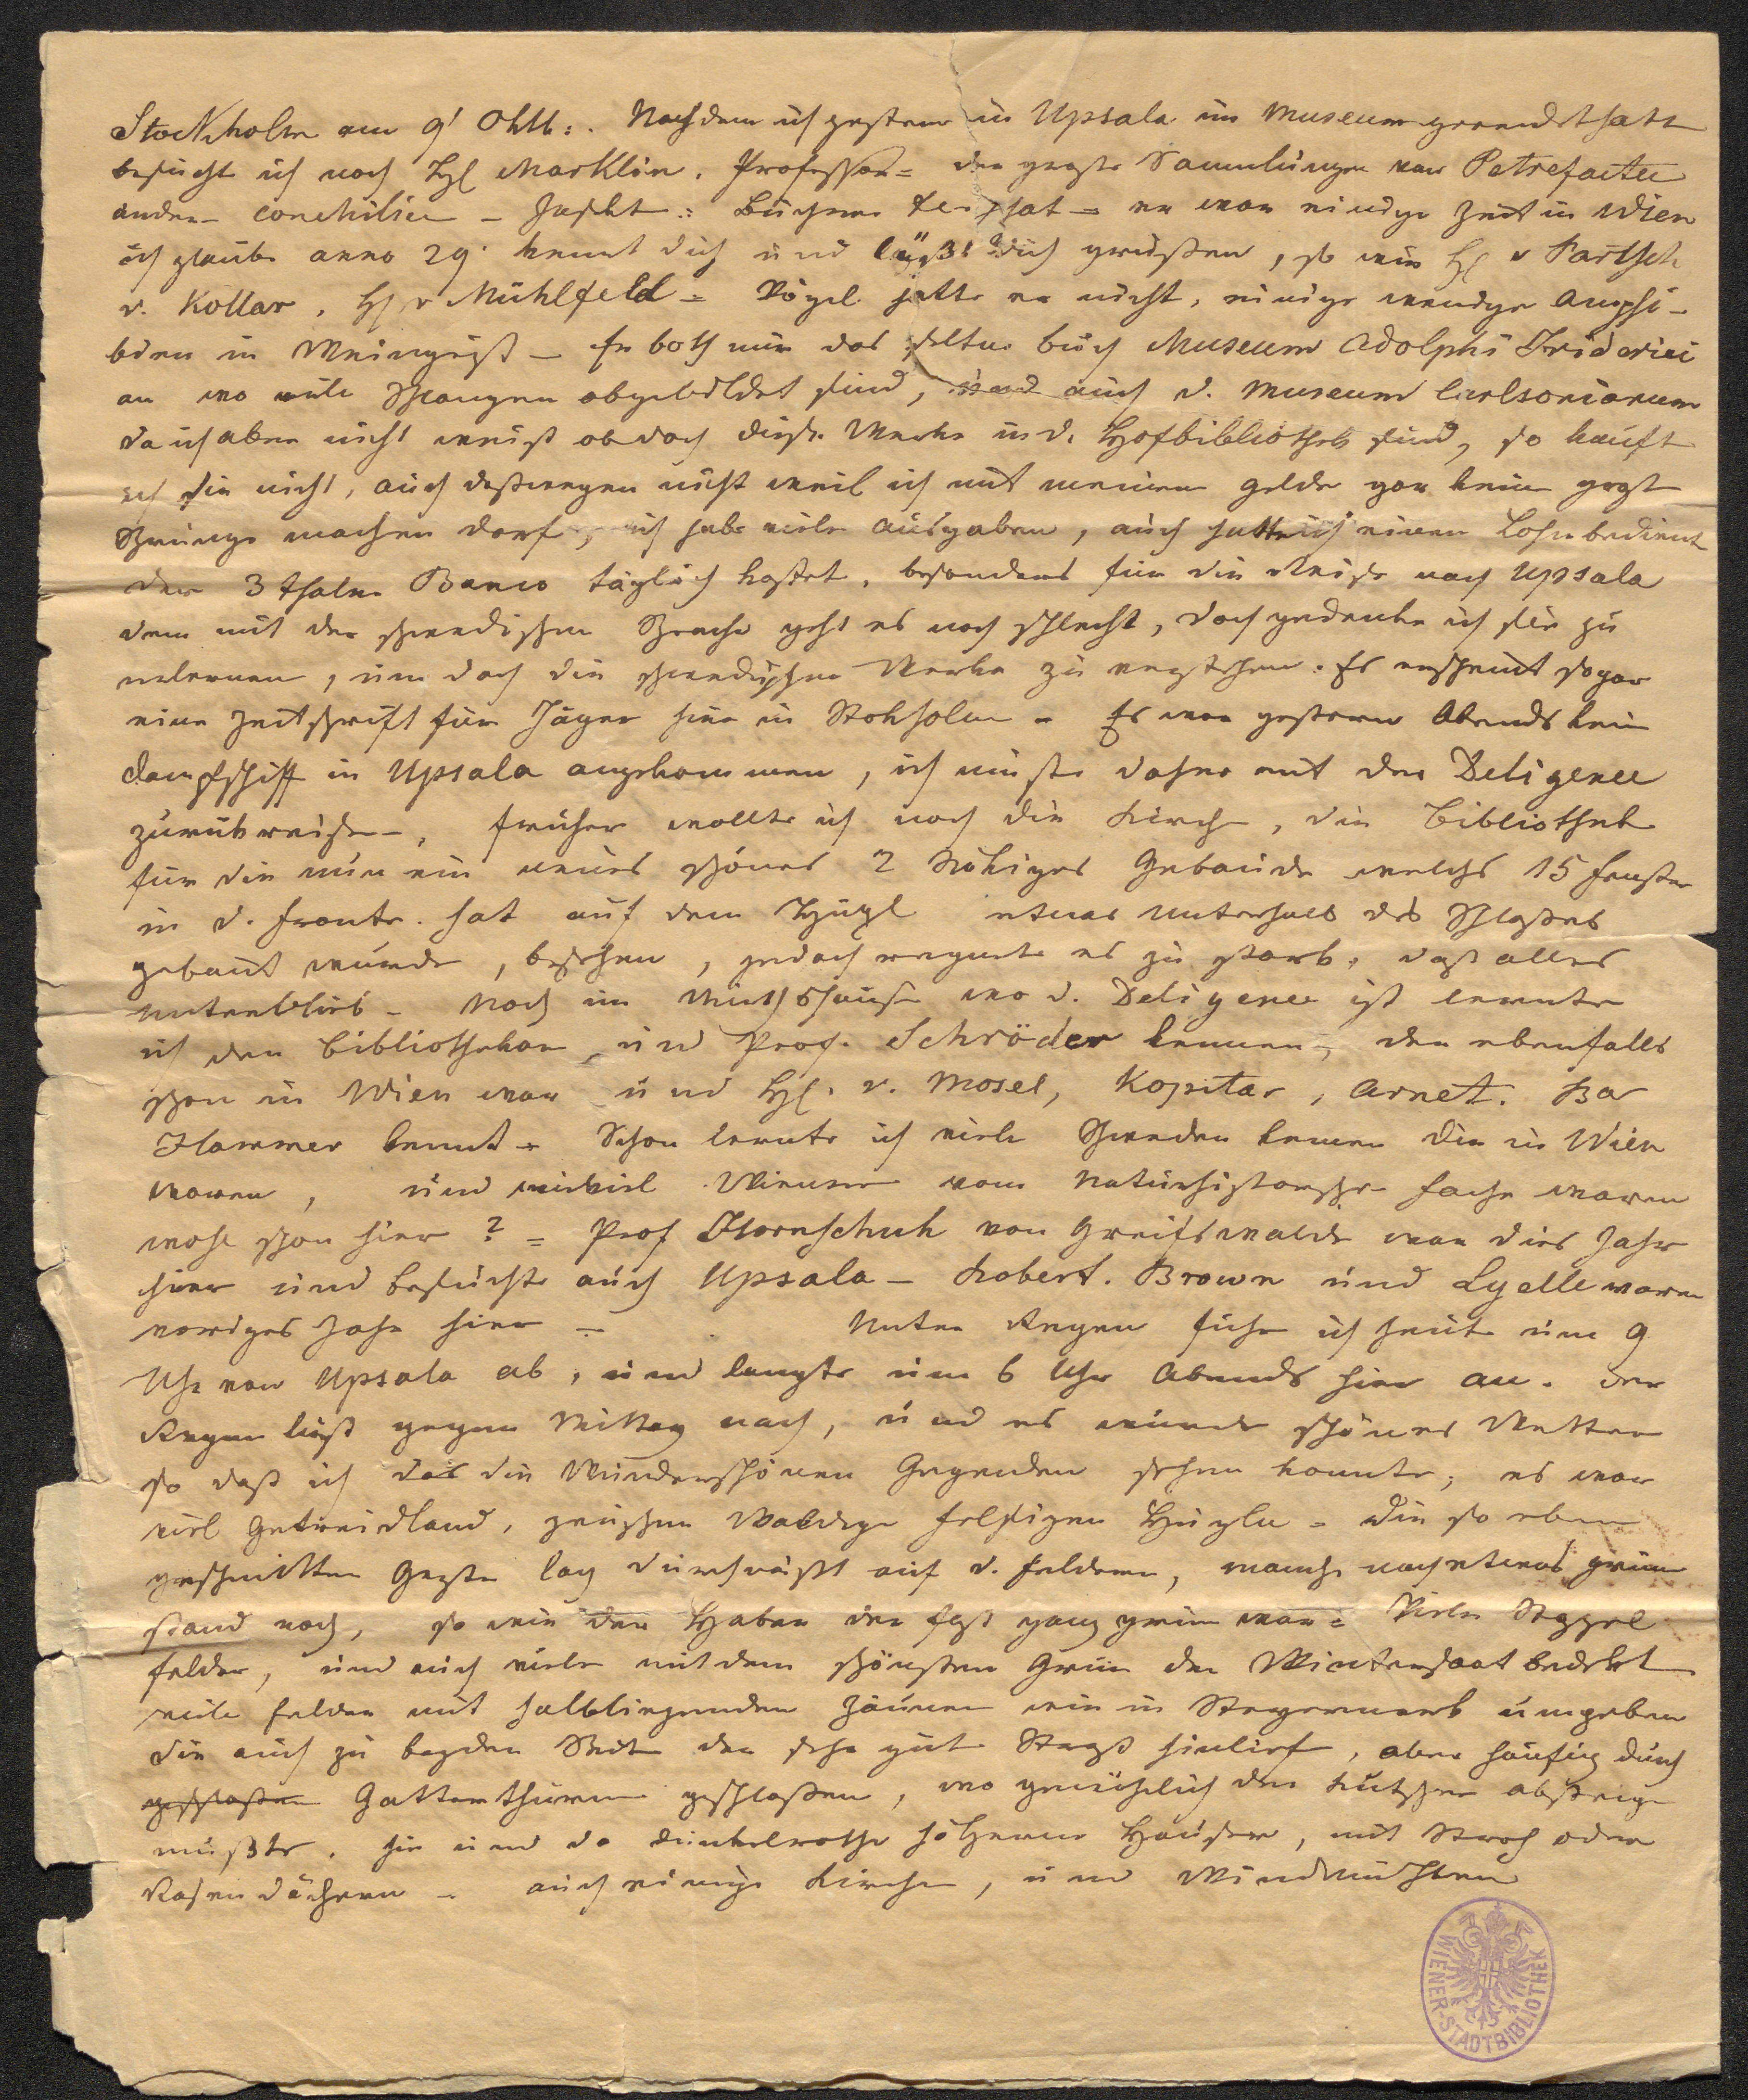 Stockholm am 9t Oktb:. Nachdem ich gestern in Upsala im Museum geendet hatte
besucht ich noch H Marklin, Professor = der große Sammlungen von Petrefacten
andern Conchilien – Insekt: Bücher hat = er war einige Zeit in Wien
ich glaube anno 29. kennt dich und läßt dich grüßen, so wie H v Partsch
v. Kollar, H v Mühlfeld = Vögel hatte er nicht, einige wenige Amphi-
bien in Weingeist – Er both mir das seltne buch Museum Adolphi Friderici
an wo viele Schlangen abgebildet sind, und auch d. Museum Carlsonianum
da ich aber nicht weiß ob doch diese Werke in d. Hofbibliothek sind, so kauft
ich sie nicht, auch deßwegen nicht weil ich mit meinem Gelde gar keine große
Sprünge machen darf, ich habe viele Ausgaben, auch hatte ich einen Lohnbedient
der 3 thaler Banco täglich kostet, besonders für die Reise nach Upsala
denn mit der schwedischen Sprache geht es noch schlecht, doch gedenke ich sie zu
erlernen, um doch die schwedischen Werke zu verstehen. Es erscheint sogar
eine Zeitschrift für Jäger hier in Stokholm = Es war gestern Abends kein
dampfschiff in Upsala angekommen, ich mußte daher mit der Deligence
zurükreisen, früher wollte ich noch die Kirche, die Bibliothek
für die nun ein neues schönes 2 stökiges Gebäude welches 15 Fenster
in d. Fronte. hat auf dem Hügl etwas unterhalb des Schloßes
gebaut wurde, besehen, jedoch regnete es zu stark, daß alles
unterblieb – Noch im Wirthshause wo d. Deligence ist lernte
ich den Bibliothekar und Prof. Schröder kennen, der ebenfalls
schon in Wien war und H. v. Mosel, Kopitar, Arnet. Bar
Hammer kennt = Schon lernte ich viele Schweden kennen die in Wien
waren, und wieviel Wiener vom Naturhistorische Fache waren
wohl schon hier? = Prof Hornschuh von Greifswalde war dies Jahr
hier und besuchte auch Upsala – Robert. Brown und Lyelle waren
voriges Jahr hier – Unter Regen fuhr ich heute um 9
Uhr von Upsala ab, und langte um 6 Uhr Abends hier an. der
Regen ließ gegen Mittag nach, und es wurde schönes Wetter
so daß ich das die Wunderschönen Gegenden sehen konnte; es war
viel Getreidland, zwischen Waldige felsigen Hügeln = die so eben
geschnittene Gerste lag durchnäßt auf d. Feldern, manche noch etwas grün
stand noch, so wie der Haber der fast ganz grün war = Viele Stoppel
felder, und auch viele mit dem schönsten Grün der Wintersaat bedekt
viele Felder mit halbliegenden Zäunen wie in Steyermark umgeben
die auch zu beyden Seiten der sehr gute Straß hinlief, aber häufig durch
geschloßen Gatterthüren geschloßen, wo gewöhnlich der Kutscher absteigen
mußte. hie und da dunkelrothe hölzerne Häuser, mit Stroh oder
Rasen dächern – auch einige Kirchen, und Windmühlen
WIENER-STADTBIBLIOTHEK